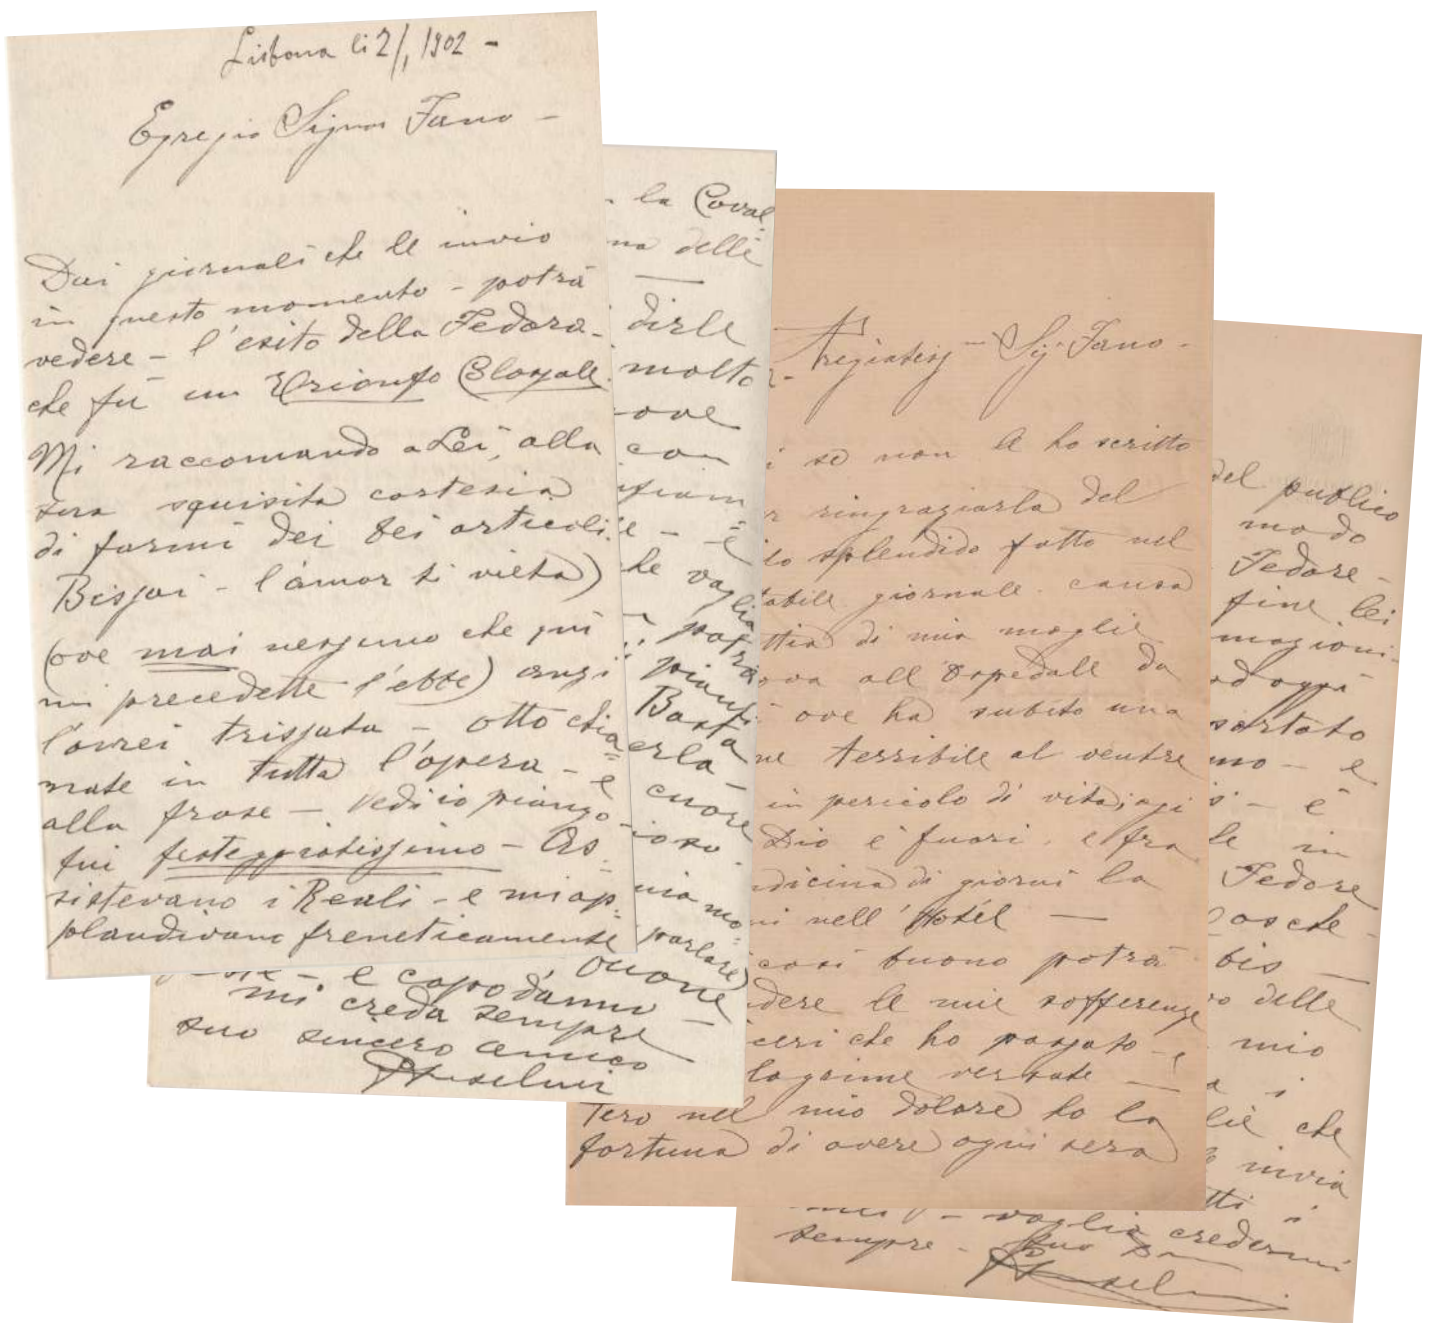 Lisbona li 2/1 1902 -
Egregio Signor Fano -
Dai giornali che le invio
in questo momento - potrà
vedere - l'esito della Fedora -
che fù un Trionfo Colossale.
Mi raccomando a Lei, alla
sua squisita cortesia
di farmi dei bei articoli.
Bissai - l'amor ti vieta)
(ove mai nessuno che quì
mi precedette l'ebbe) anzi
l'avrei trissata - otto chia=
mate in tutta l'opera - e
alla frase - vedi io piango -
fui festeggiatissimo - As=
sistevano i Reali - e mi ap=
plaudivano freneticamente
la Caval=
na delle
dirle
molto
ove
con
e - è
he vaglia
potrà
pianti
Basta
erla
cuore
ioso.
mia mo=
parlare)
buone
e capo d'anno -
mi creda sempre
suo sincero amico
Anselmi
Pregiatess Sig. Fano -
i se non le ho scritto
r ringraziarla del
lo splendido fatto nel
tabile giornale. causa
ttia di mia moglie
ova all'Ospedale da
ì ove ha subito una
ne terribile al ventre
in pericolo di vita, oggi
Dio è fuori. e fra
dicina di giorni la
ni nell'Hotél -
così buono potrà
dere le mie sofferenze
ceri che ho passato - e
lagrime versate -
tero nel mio dolore ho la
fortuna di avere ogni sera
del publico
modo
Fedore -
fine lei
magioni=
ad oggi
sortato
mo - e
- è
le in
Fedore
Tosche -
bis -
o delle
mio
a i
lie che
invia
tti i
- voglia credermi
sempre - Suo
Anselmi